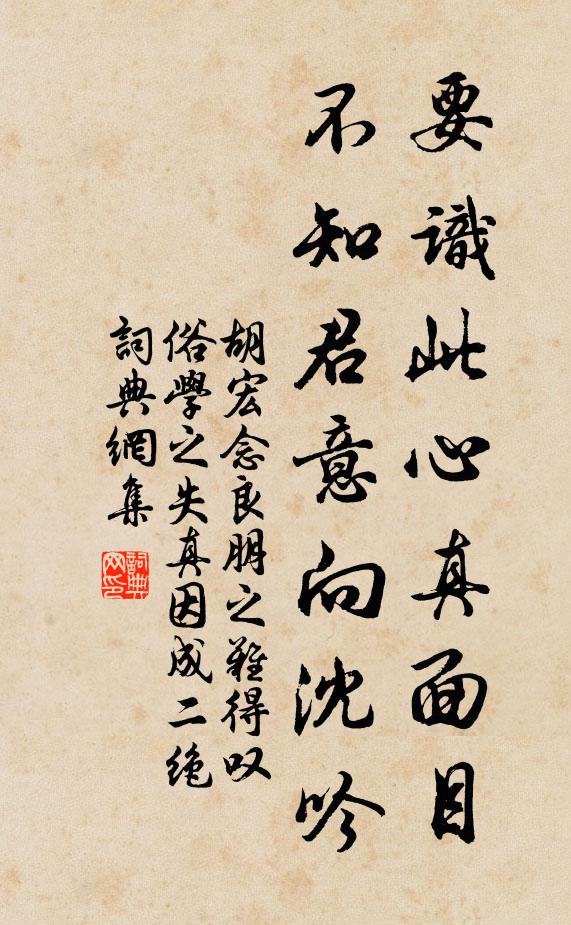 要識此心真面目
不知君意向沈吟
胡宏念良朋之難得叹
俗學之失真因成二绝
詞典網集
詞典网印